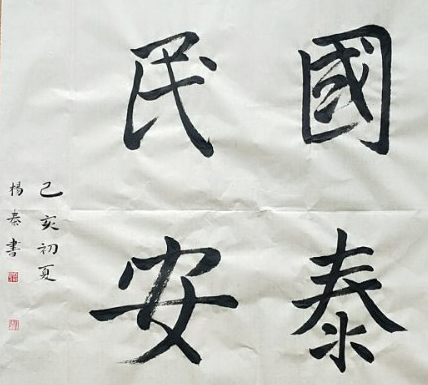 國泰
民安
己亥初夏
楊泰書